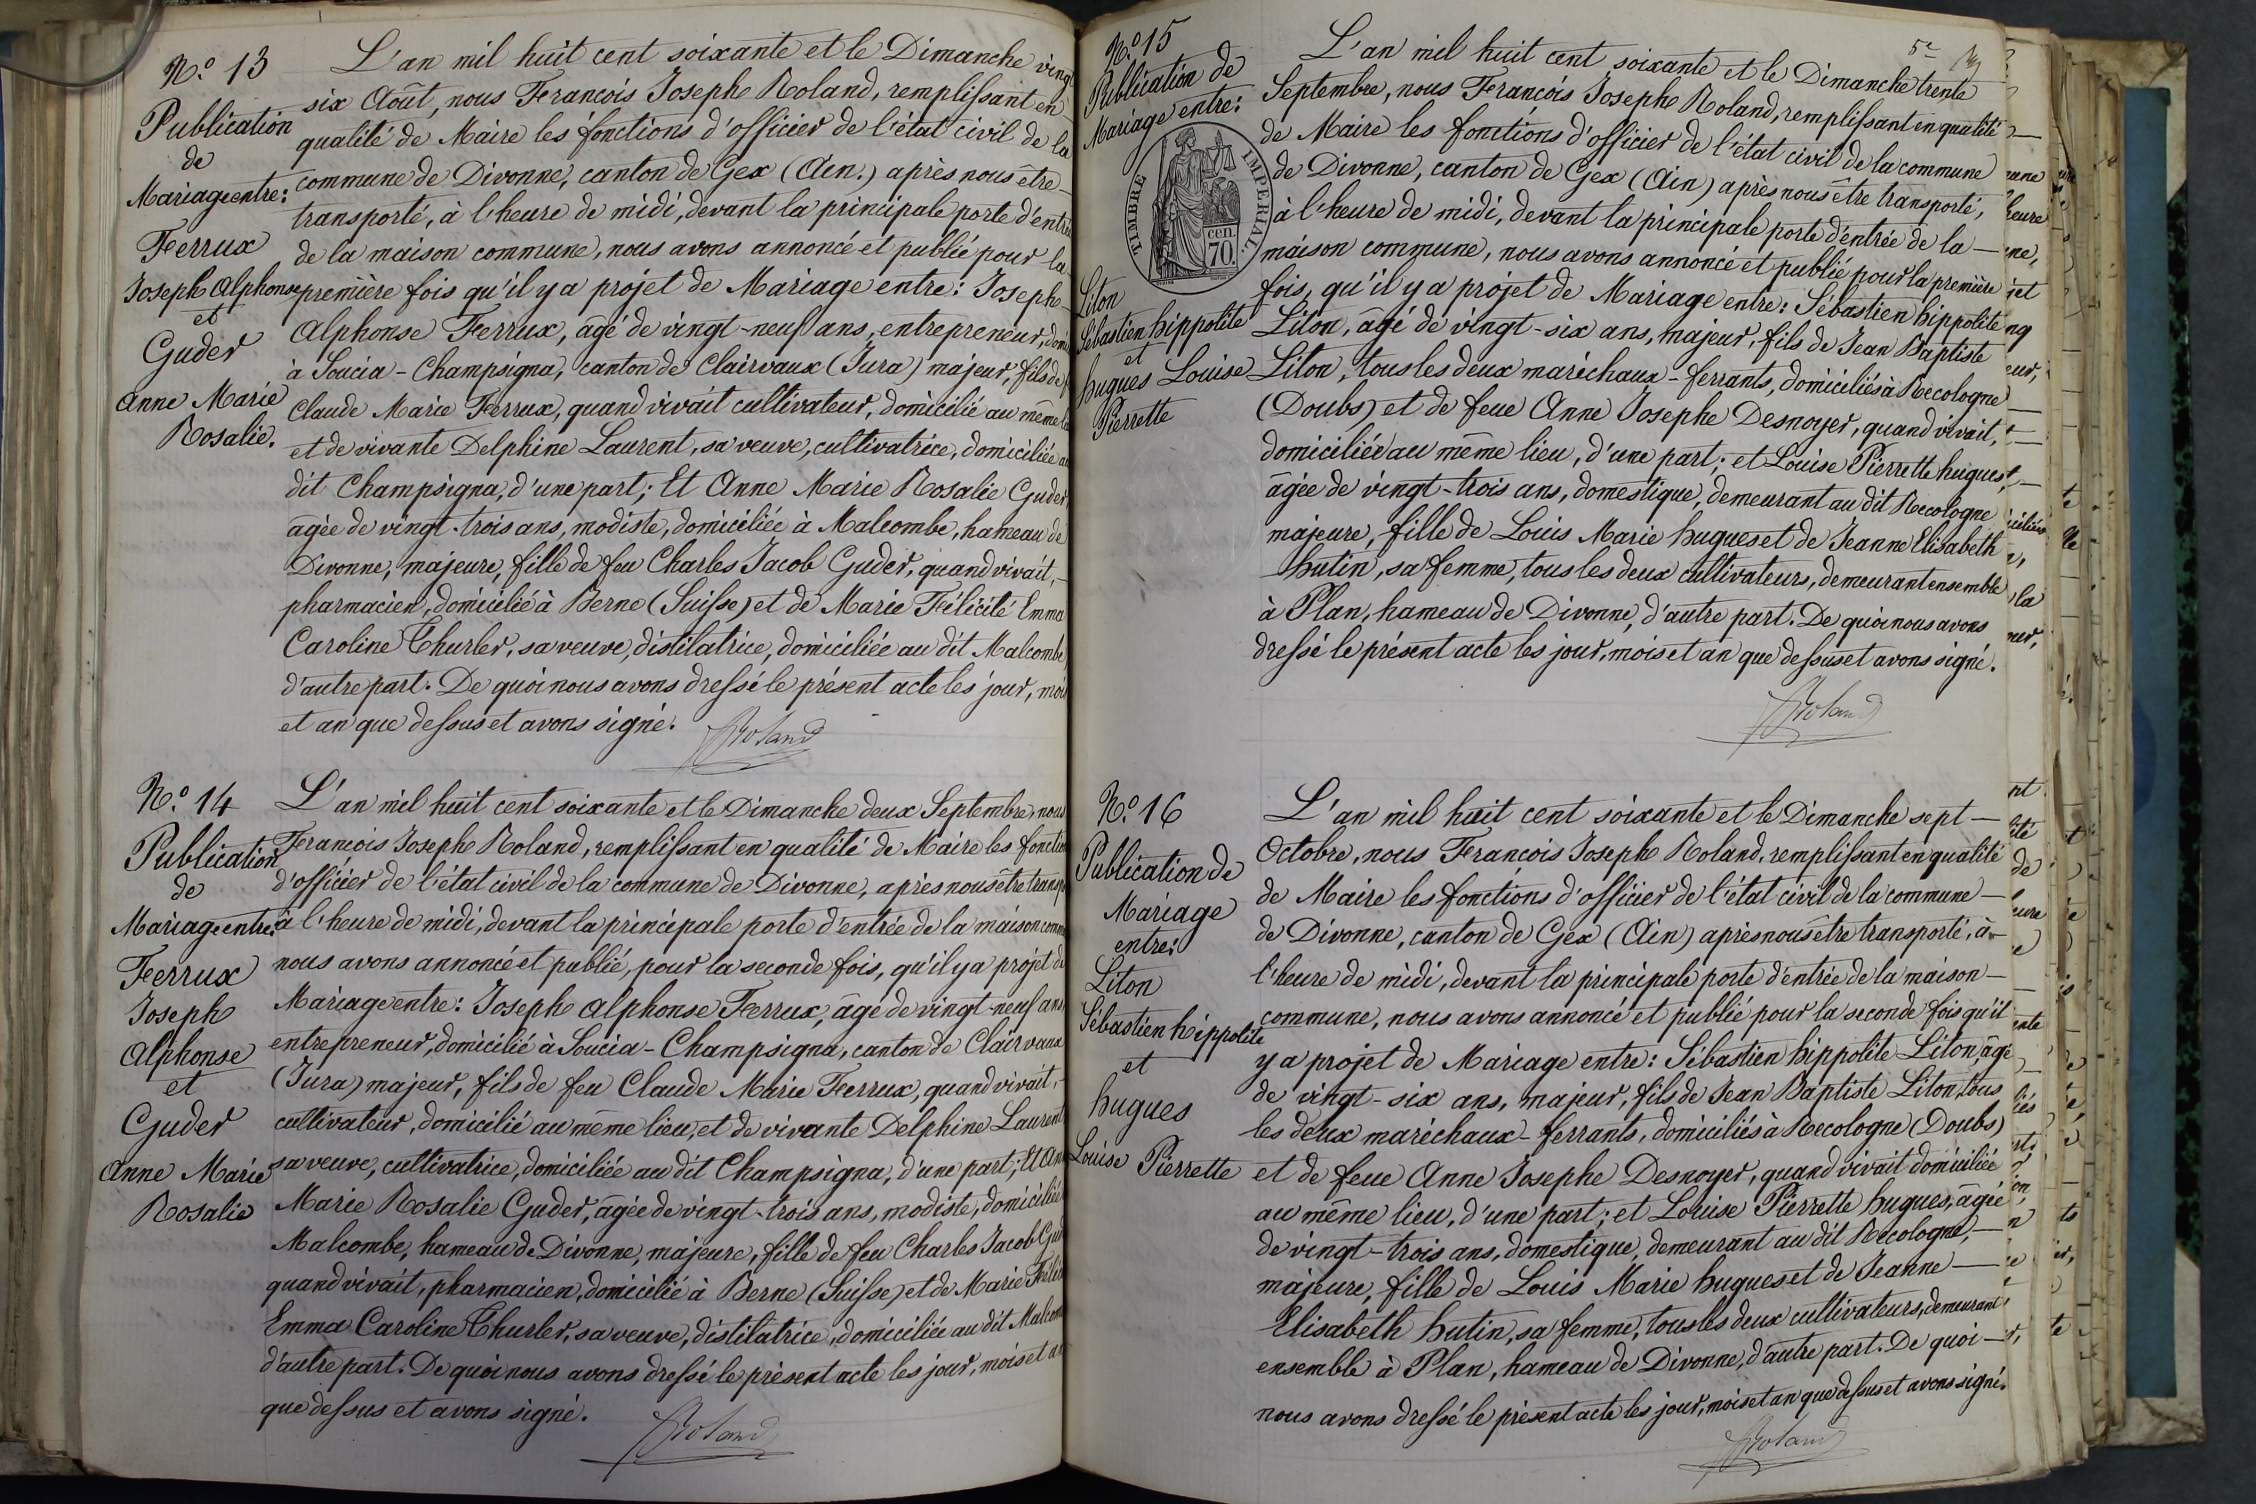 N.° 13
Publication
de
Mariage entre:
Ferrux
Joseph Alphonse
et
Guder
Anne Marie
Rosalie.
L'an mil huit cent soixante et le Dimanche vingt
six Août, nous François Joseph Roland, remplissant en
qualité de Maire les fonctions d'officier de l'état civil de la
commune de Divonne, canton de Gex (Ain.) après nous être
transporté, à l'heure de midi, devant la principale porte d'entrée
de la maison commune, nous avons annoncé et publié pour la
première fois qu'il y a projet de Mariage entre: Joseph
Alphonse Ferrux, âgé de vingt-neuf ans, entrepreneur,
à Soucia-Champsigna, canton de Clairvaux (Jura) majeur, fils de
Claude Marie Ferrux, quand vivait cultivateur, domicilié au même
et de vivante Delphine Laurent, sa veuve, cultivatrice, domiciliée au
dit Champsigna, d'une part; Et Anne Marie Rosalie Guder,
âgée de vingt-trois ans, modiste, domiciliée à Malcombe, hameau de
Divonne, majeure, fille de feu Charles Jacob Guder, quand vivait,
pharmacien, domicilié à Berne (Suisse) et de Marie Félicité Emma
Caroline Thurler, sa veuve, distilatrice, domiciliée au dit Malcombe
d'autre part. De quoi nous avons dressé le présent acte les jour, mois
et an que dessus et avons signé.
Roland
N.° 14
Publication
de
Mariage entre:
Ferrux
Joseph
Alphonse
et
Guder
Anne Marie
Rosalie
L'an mil huit cent soixante et le Dimanche deux Septembre, nous
François Joseph Roland, remplissant en qualité de Maire les fonctions
d'officier de l'état civil de la commune de Divonne, après nous être transp
à l'heure de midi, devant la principale porte d'entrée de la maison comm
nous avons annoncé et publié, pour la seconde fois, qu'il y a projet de
Mariage entre: Joseph Alphonse Ferrux, âgé de vingt-neuf ans,
entrepreneur, domicilié à Soucia-Champsigna, canton de Clairvaux
(Jura) majeur, fils de feu Claude Marie Ferrux, quand vivait,
cultivateur, domicilié au même lieu, et de vivante Delphine Laurent
sa veuve, cultivatrice, domiciliée au dit Champsigna, d'une part; Et Anne
Marie Rosalie Guder, âgée de vingt-trois ans, modiste, domiciliée
Malcombe, hameau de Divonne, majeure, fille de feu Charles Jacob Guder
quand vivait, pharmacien, domicilié à Berne (Suisse) et de Marie Félicité
Emma Caroline Thurler, sa veuve, distilatrice, domiciliée au dit Malcom
d'autre part. De quoi nous avons dressé le présent acte les jour, mois et an
que dessus et avons signé.
Roland
N.° 15
Publication de
Mariage entre:
TIMBRE IMPERIAL.
70. cen.
Liton
Sébastien hippolite
et
hugues Louise
Pierrette
5e
L'an mil huit cent soixante et le Dimanche trente
Septembre, nous François Joseph Roland, remplissant en qualité
de Maire les fonctions d'officier de l'état civil de la commune
de Divonne, canton de Gex (Ain) après nous être transporté,
à l'heure de midi, devant la principale porte d'entrée de la
maison commune, nous avons annoncé et publié pour la première
fois, qu'il y a projet de Mariage entre: Sébastien hippolite
Liton, âgé de vingt-six ans, majeur, fils de Jean Baptiste
Liton, tous les deux maréchaux-ferrants, domiciliés à Recologne
(Doubs) et de feue Anne Josephe Desnoyer, quand vivait,
domiciliée au même lieu, d'une part; et Louise Pierrette hugues,
âgée de vingt-trois ans, domestique, demeurant au dit Recologne
majeure, fille de Louis Marie hugues et de Jeanne Elisabeth
hutin, sa femme, tous les deux cultivateurs, demeurant ensemble
à Plan, hameau de Divonne, d'autre part. De quoi nous avons
dressé le présent acte les jour, mois et an que dessus et avons signé.
Roland
N.° 16
Publication de
Mariage
entre:
Liton
Sébastien hippolite
et
hugues
Louise Pierrette
L'an mil huit cent soixante et le Dimanche sept
Octobre, nous François Joseph Roland, remplissant en qualité
de Maire les fonctions d'officier de l'état civil de la commune
de Divonne, canton de Gex (Ain) après nous être transporté, à
l'heure de midi, devant la principale porte d'entrée de la maison
commune, nous avons annoncé et publié pour la seconde fois qu'il
y a projet de Mariage entre: Sébastien hippolite Liton, âgé
de vingt-six ans, majeur, fils de Jean Baptiste Liton, tous
les deux maréchaux-ferrants, domiciliés à Recologne (Doubs)
et de feue Anne Josephe Desnoyer, quand vivait domiciliée
au même lieu, d'une part; et Louise Pierrette hugues, âgée
de vingt-trois ans, domestique, demeurant au dit Recologne,
majeure, fille de Louis Marie hugues et de Jeanne
Elisabeth hutin, sa femme, tous les deux cultivateurs, demeurant
ensemble à Plan, hameau de Divonne, d'autre part. De quoi
nous avons dressé le présent acte les jour, mois et an que dessus et avons signé.
Roland